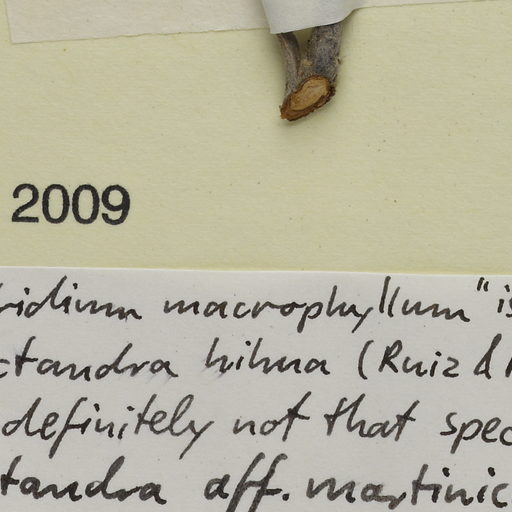 2009
ridium macrophyllum" is
ctandra hihua (Ruiz &
definitely not that spec
tandra aff. martinic